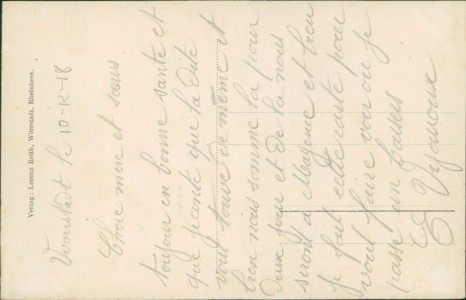 Verlag: Lorenz Roth, Wörrstadt, Rheinhess.
Voorstadt le 10-12-18
Chere mère et sœurs
toujour en bonne santé et
que je conte que la dite
vous trouve de même et
bien nous somme la pour
deux jour et de la nous
seront a Mayence et bien
je fait cette carte pour
vous faire voir ou je
passe un baisers